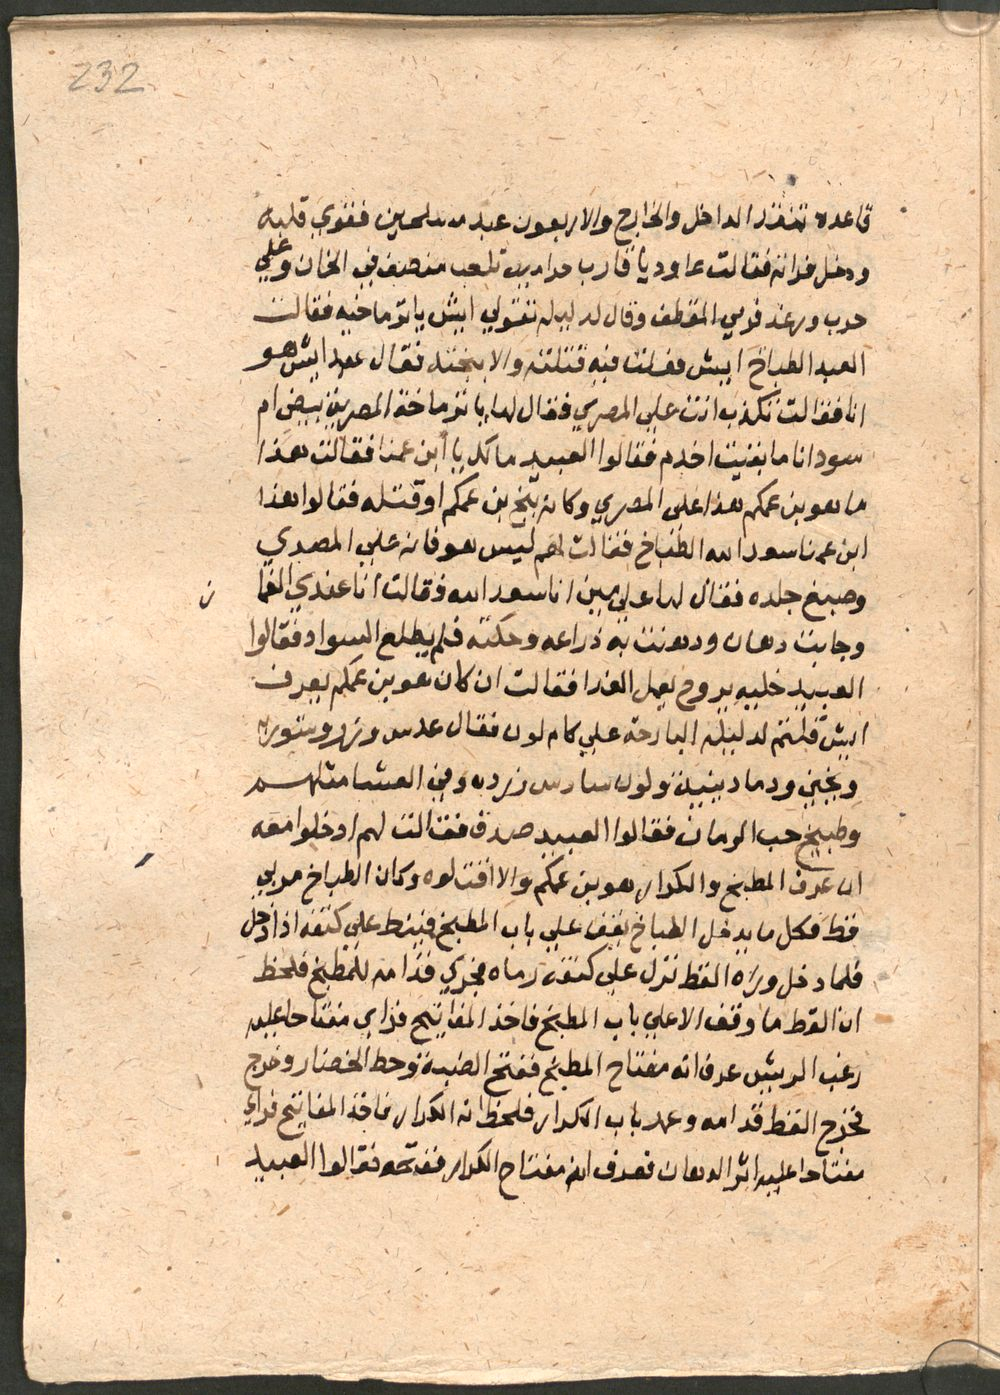 232
قاعده تنظر الداخل والخارج والاربعون عبد مسلحين فقوي قلبه
ودخل فراته فقالت عاود يا قارب حرامي تلعب منصف في الخان وعلي
حرب وعند فرسي المقطف وقال لدليله تقولي ايش يا ترماخيه فقالت
العبد الطباخ ايش فعلت فيه قتلته والا بنجته فقال عبد ايش هو
انا فقالت تكذب انت علي المصري فقال لها يا ترماخه المصريين بيض ام
سود انا ما بقيت اخدم فقالوا العبيد مالك يا ابن عمنا فقالت هذا
ما هو بن عمكم هذا علي المصري وكانه بنج بن عمكم او قتله فقالوا هذا
ابن عمنا سعد الله الطباخ فقالت لهم ليس هو فانه علي المصري
وصبغ جلده فقال لها علي مين انا سعد الله فقالت انا عندي الغما
ن
وجابت دهان ودهنت به ذراعه وحكته فلم يطلع السواد فقالوا
العبيد خليه يروح يعمل الغدا فقالت ان كان هو بن عمكم يعرف
ايش قلتم له ليلة البارحة علي كام لون فقال عدس ورز وشوربه
ويخني وماوردية ولون سادس زرده وفي العشا مثلهم
وطبيخ حب الرمان فقالوا العبيد صدق فقالت لهم ادخلوا معه
ان عرف المطبخ والكرار هو بن عمكم والا اقتلوه وكان الطباخ مربي
قط فكل ما يدخل الطباخ يقف علي باب المطبخ فينط علي كتفه اذا دخل
فلما دخل وراه القط نزل علي كتفه رماه فجري قدامه للمطبخ فلحظ
ان القط ما وقف الا علي باب المطبخ فاخذ المفاتيح فراي مفتاحا عليه
زغب الريش عرف انه مفتاح المطبخ ففتح الضبه وحط الخضار وخرج
فخرج القط قدامه وعمد باب الكرار فلحظ انه الكرار فاخذ المفاتيح فراي
مفتاحا عليه اثر الدهان فعرف انه مفتاح الكرار ففتحه فقالوا العبيد